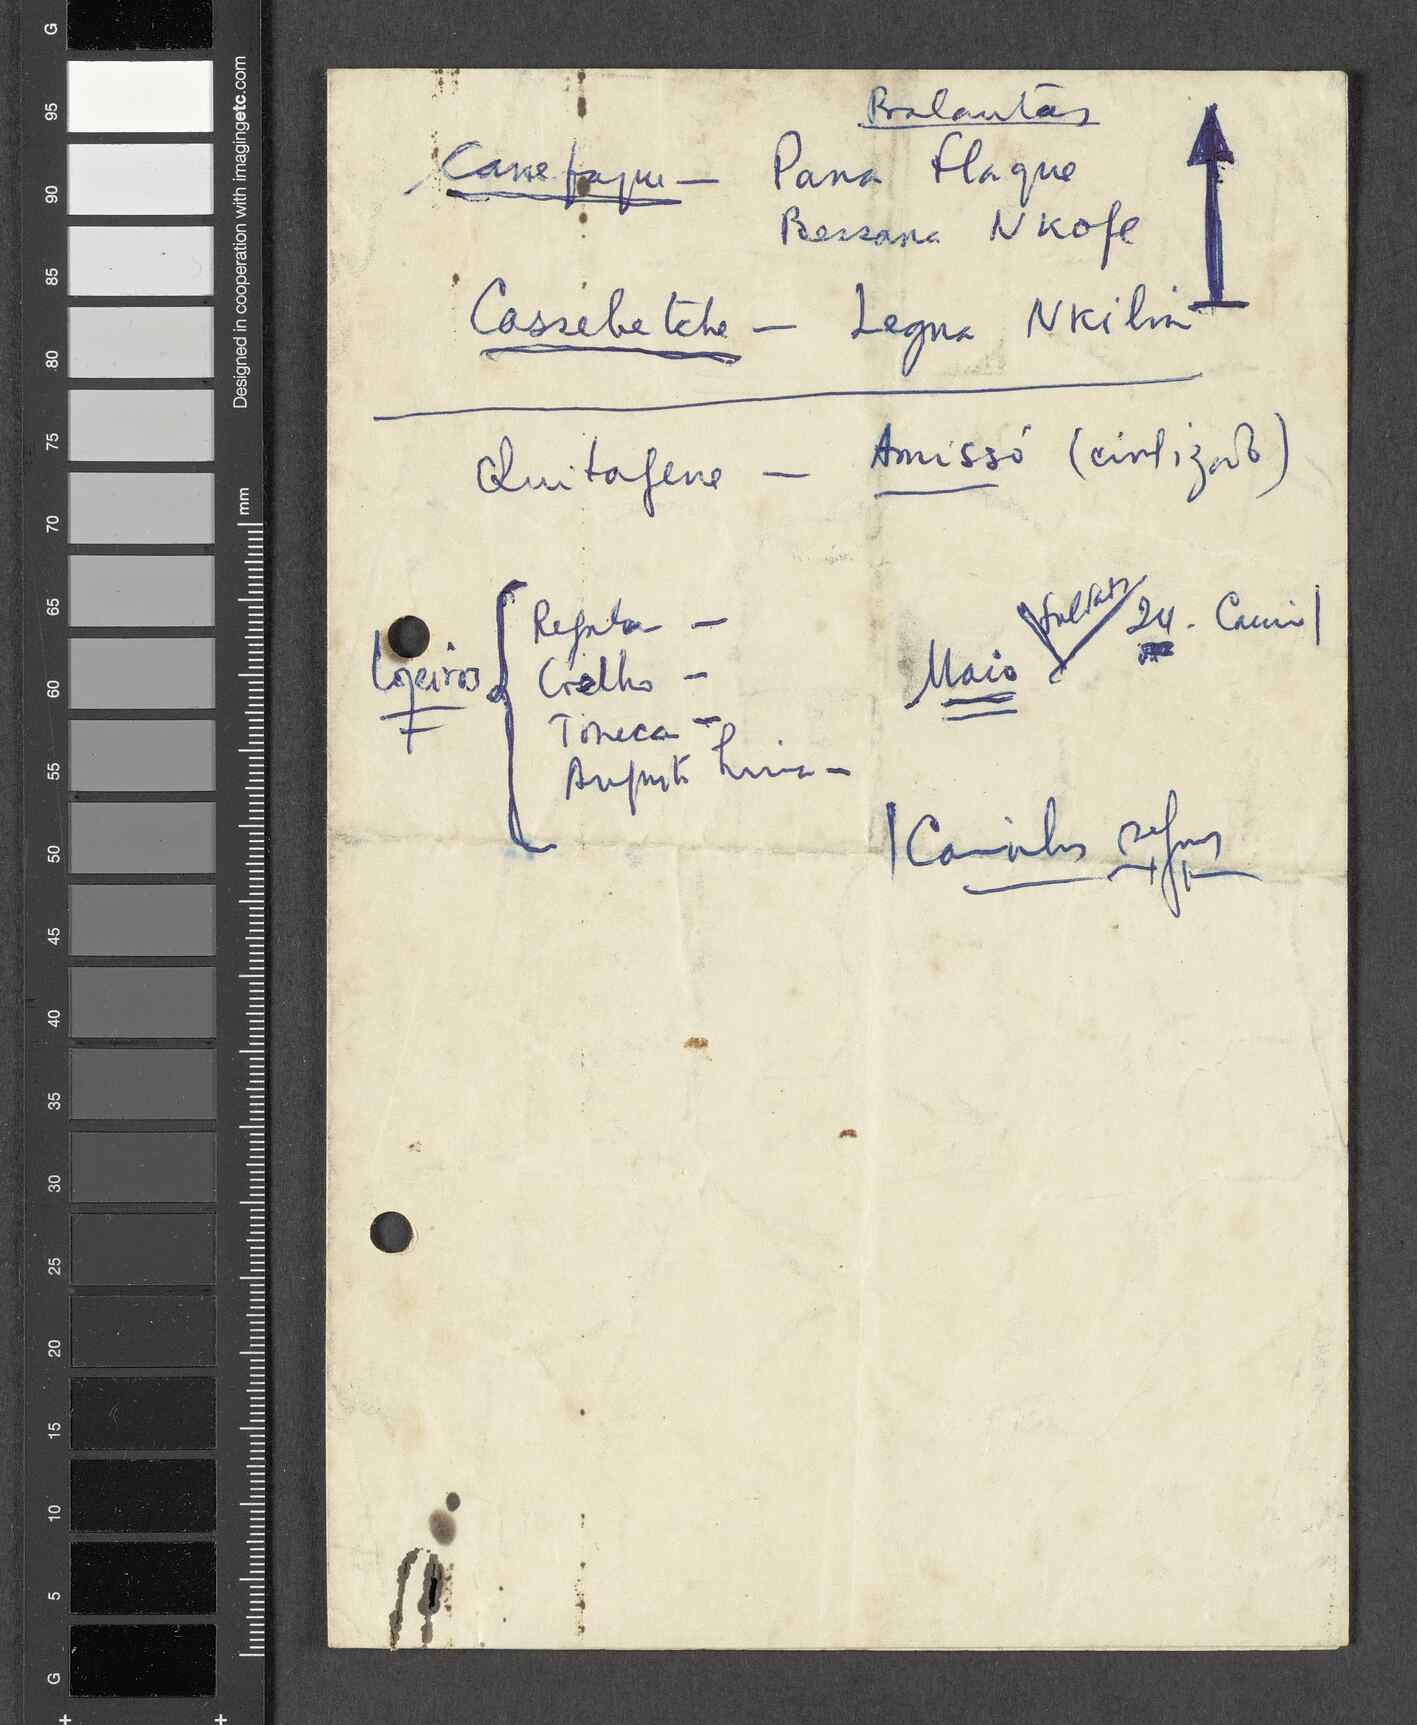 Balantas
Canefaque — Pana Flaque
Bessana Nkofe
Cassebetche — Legna Nkilin
Quitafene — Amissó (civilizado)
Lojeiros
Coelho —
Toneca —
Augusto Lima —
Maio
24
G
95
90
85
80
75
70
65
60
55
50
45
40
35
30
25
20
15
10
5
G
Designed in cooperation with imagingetc.com
mm